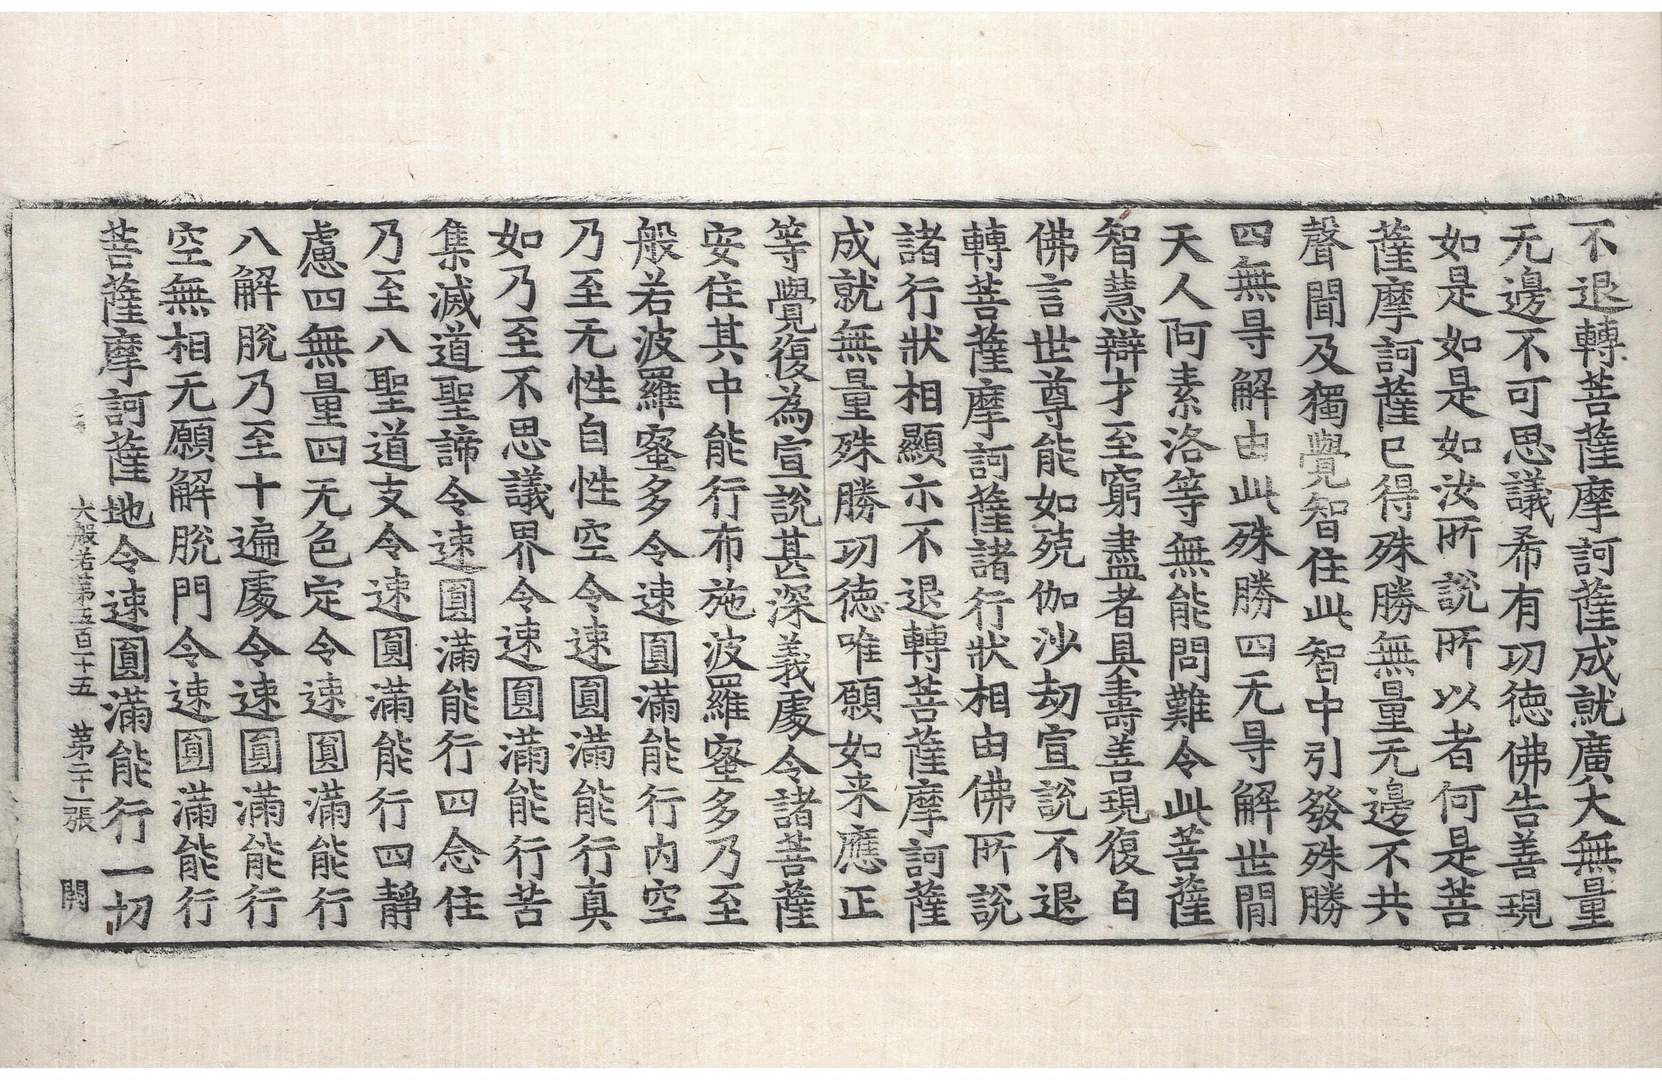 不退轉菩薩摩訶薩成就廣大無量
无邊不可思議希有功德佛告善現
如是如是如汝所說所以者何是菩
薩摩訶薩已得殊勝無量无邊不共
聲聞及獨覺智住此智中引發殊勝
四無㝵解由此殊勝四无㝵解世間
天人阿素洛等無能問難令此菩薩
智慧辯才至窮盡者具壽善現復白
佛言世尊能如殑伽沙劫宣說不退
轉菩薩摩訶薩諸行狀相由佛所說
諸行狀相顯示不退轉菩薩摩訶薩
成就無量殊勝功德唯願如来應正
等覺復為宣說甚深義處令諸菩薩
安住其中能行布施波羅蜜多乃至
般若波羅蜜多令速圓滿能行內空
乃至无性自性空令速圓滿能行真
如乃至不思議界令速圓滿能行苦
集滅道聖諦令速圓滿能行四念住
乃至八聖道支令速圓滿能行四靜
慮四無量四无色定令速圓滿能行
八解脫乃至十遍處令速圓滿能行
空無相无願解脫門令速圓滿能行
菩薩摩訶薩地令速圓滿能行一切
大般若第五百十五 第二十一張 閏